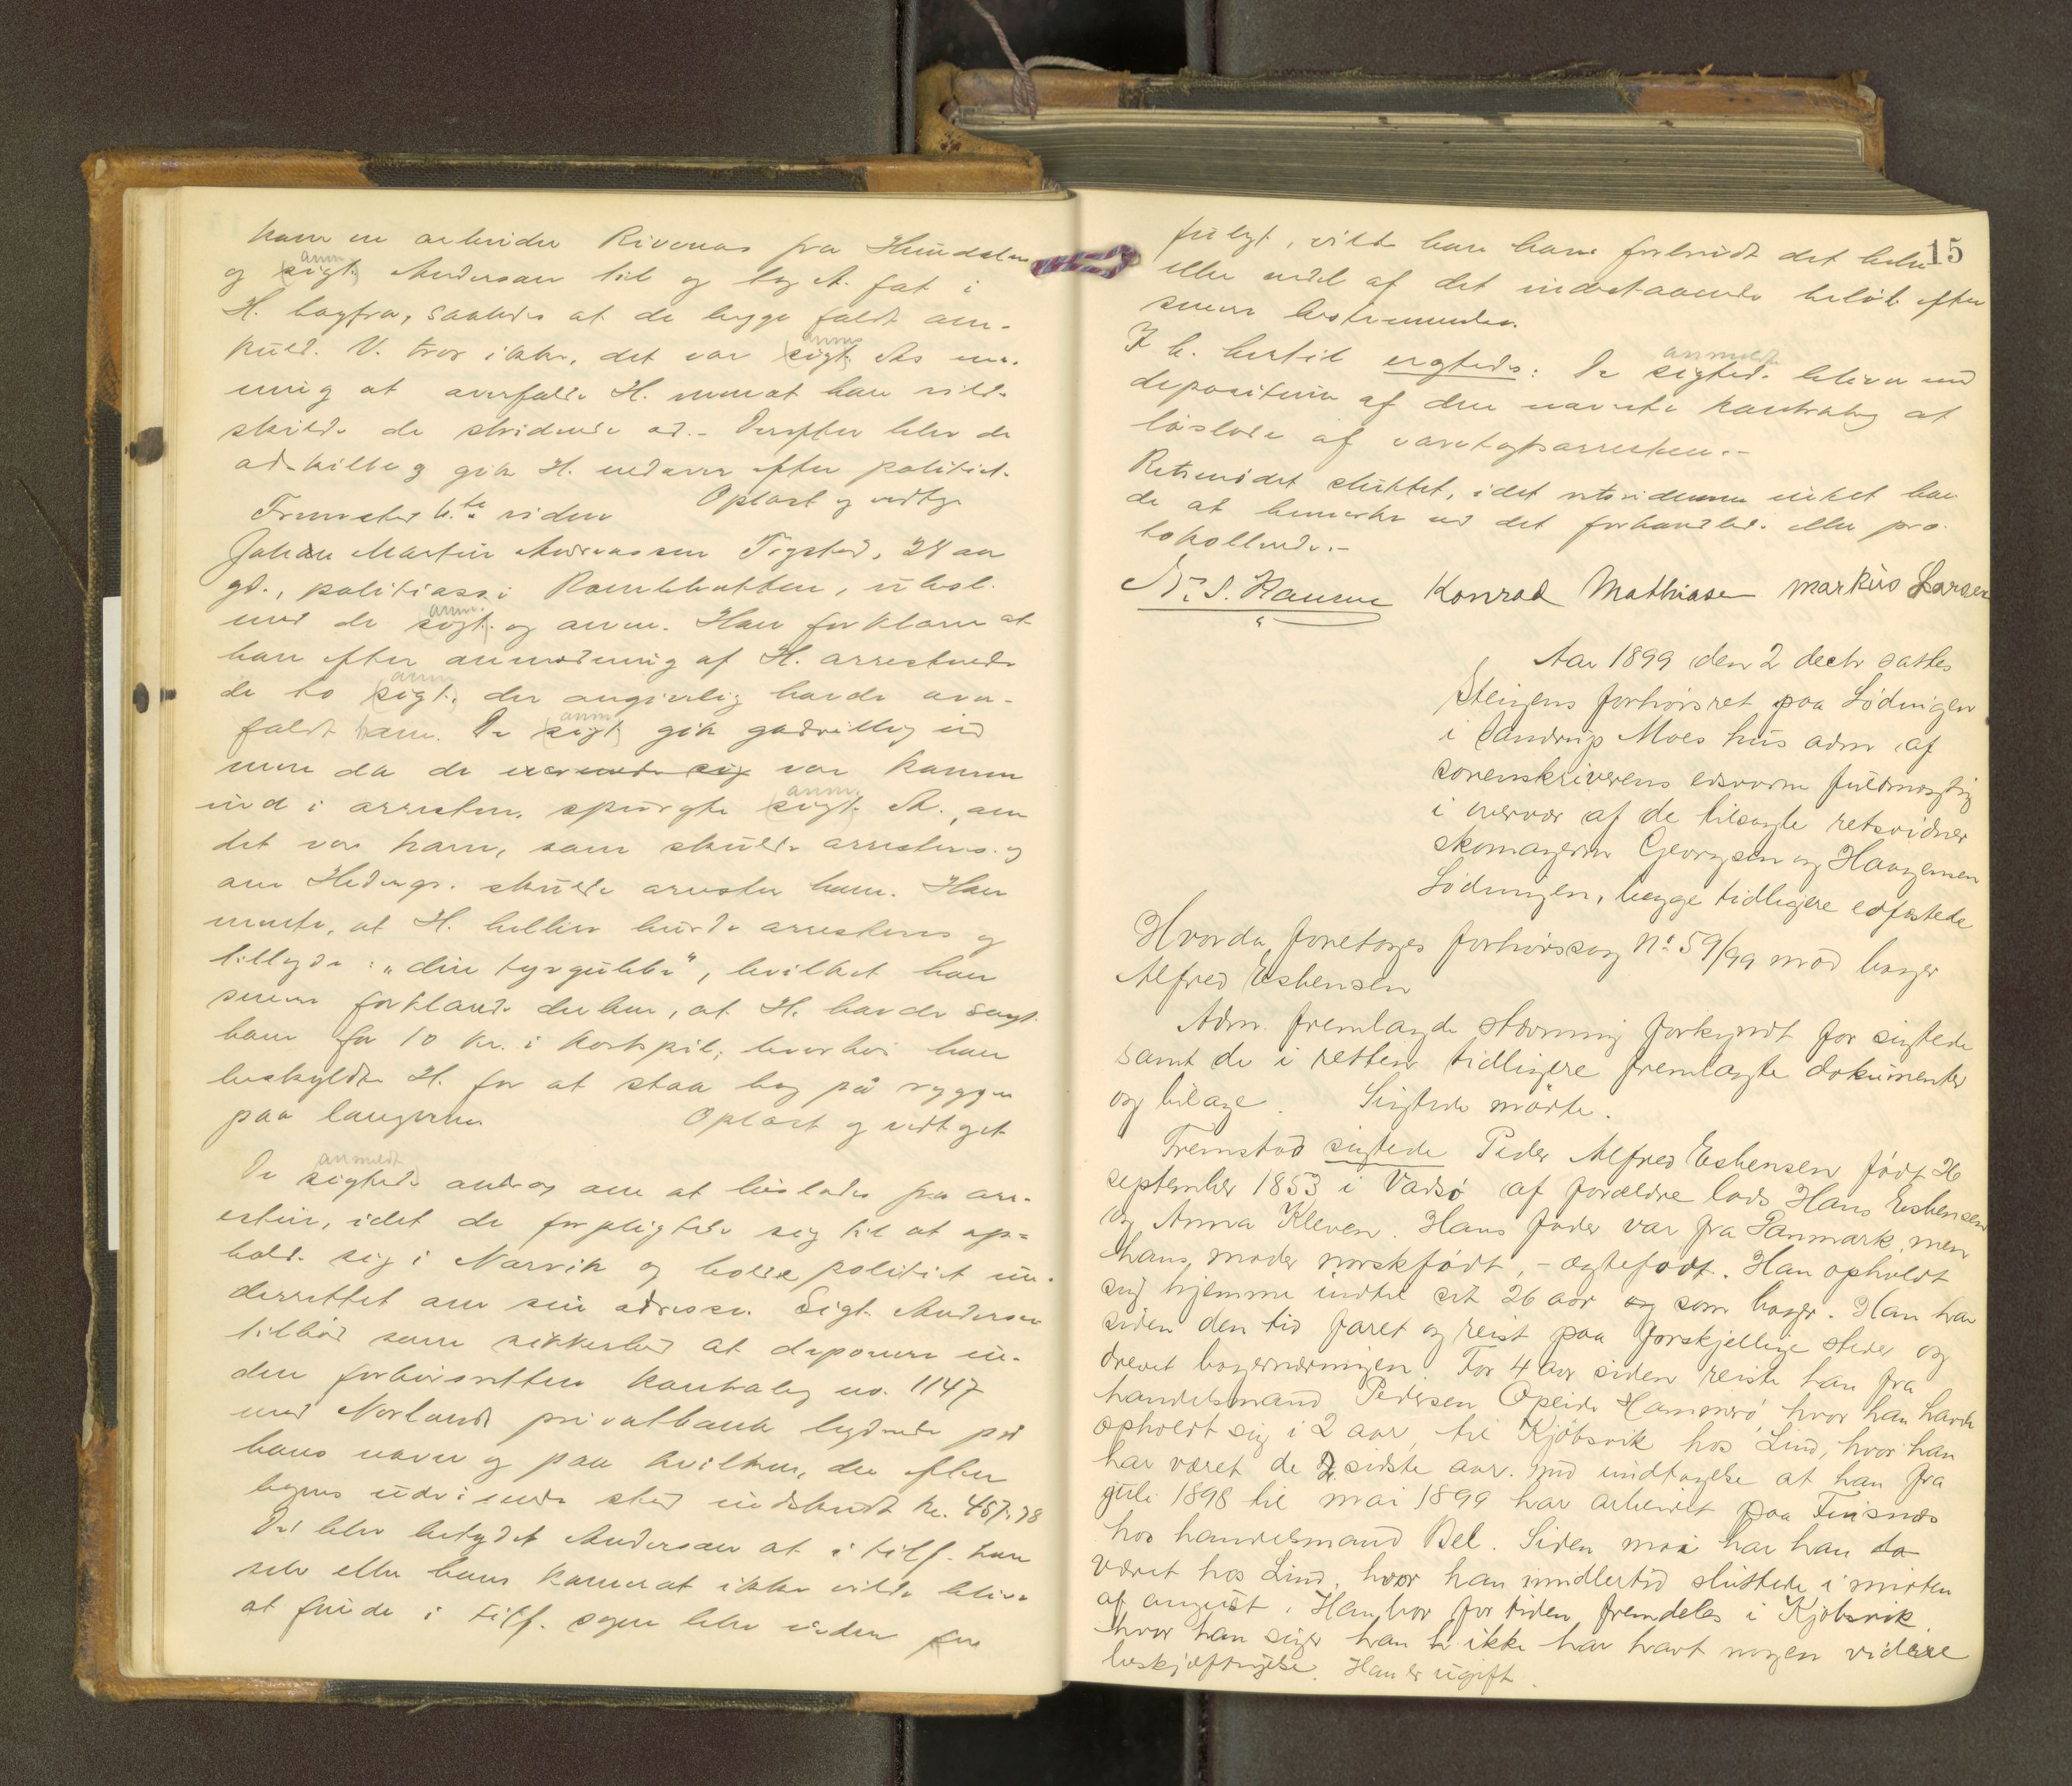 kom en arbeider Rivenæs fra Hundalen
anm
og (sigt.) Andersen til og tog A. fat i
H. bagfra, saaledes at de begge faldt om-
anm.
kuld. V. tror ikke, det var (sigt.) As me-
ning at overfalde H. men at han vilde
skille de stridende ad. – Derefter blev de
adskilte og gik H. nedover efter politiet.
Oplæst og vedtget
Fremstod 6.te vidne
Johan Martin Andreassen Tegsted, 28 aar
gl., politiass. i Rombakbotten, ubesl.
anm.
med de (sigt.) og anm. Han forklarer at
han efter anmodning af H. arresterede
anm
de to (sigt.) der angivelig havde over-
anm
faldt ham. De (sigt.) gik godvillig ind
men da de var kommen
anm.
ind i arresten, spurgte (sigt.) A., om
det var ham, som skulde arresteres og
om Hedengr. skulde arrestere ham. Han
mente, at H. heller burde arresteres og
tillagde: „din tyvgubbe", hvilket han
senere forklarede derhen, at H. havde sagt
ham for 10 kr. i kortspil; hvorhos han
beskyldte H. for at staa bag på ryggen
paa langerne Oplæst og vedtget
anmeldt
De sigtede androg om at løslades fra arr-
esten, idet de forpligtede sig til at op-
holde sig i Narvik og holde politiet un-
derrettet om sin adresse. Sigt. Andersen
tilbød som sikkerhed at deponere in-
den forhørsretten kontrabog no. 1147
med Norlands privatbank lydende på
hans navn og paa hvilken, der efter
bogens udvisende stod indskudt kr. 467.78
Det blev betydet Andersen at i tilf. han
selv eller hans kamerat ikke vilde blive
at finde i tilf. sagen blev videre for
15
fulgt, vilde han have forbrudt det hele
eller endel af det indestaaende beløb efter
senere bestemmelse.
I h. hertil
anmeldt
vegtedes: De sigtede bliver mod
depositum af den nævnte kontrabog at
løslade af varetægtsarresten. –
Retsmødet sluttet, idet retsvidnerne intet hav-
de at bemærke ved det forhandlede eller pro-
tokollerede. –
N. S. Hanson Konrad Mathiasen Markus Larsen
Aar 1899 den 2 decbr sattes
Steigens forhørsret paa Lødingen
i Sandrup Moes hus adm af
sorenskriverens edsvorne fuldmægtig
i overvær af de tilsagte retsvidner
skomagerne Georgsen og Haagensen
Lødingen, begge tidligere edfæstede
Hvorda foretoges forhørssag No 59/99 mod bager
Alfred Esbensen
Adm. fremlagde stævning forkyndt for sigtede
samt de i retten tidligere fremlagte dokumenter
og bilage. Sigtede mødte.
Fremstod sigtede Peder Alfred Esbensen født 26
september 1853 i Vadsø af forældre lods Hans Esbensen
og Anna Kleven. Hans fader var fra Danmark, men
hans moder norskfødt, – ægtefødt. Han opholdt
sig hjemme indtil sit 26 aar og som bager. Han har
siden den tid faret og reist paa forskjellige steder og
drevet bagernæringen. For 4 aar siden reiste han fra
handelsmand Pedersen Opeide Hammerø, hvor han havde
opholdt sig i 2 aar, til Kjøbsvik hos Lind, hvor han
har været de 2 sidste aar. med undtagelse at han fra
juli 1898 til mai 1899 har arbeidet paa Finsnæs
hos handelsmand Bel. Siden mai har han da
været hos Lind, hvor han imidlertid sluttede i midten
af august. Han bor for tiden fremdeles i Kjøbsvik
hvor han siger han ikke har havt nogen videre
beskjæftigelse. Han er ugift.